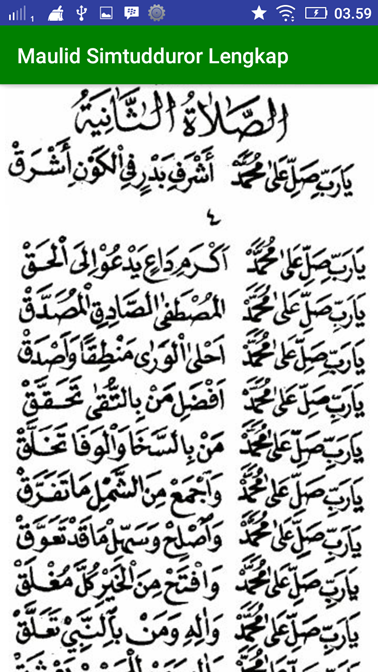 1 03.59
Maulid Simtudduror Lengkap
الصَّلَاةُ الثَّانِيَةُ
يَارَبِّ صَلِّ عَلَى مُحَمَّدْ أَشْرَفِ بَدْرٍ فِي الْكَوْنِ أَشْرَقْ
٤
يَارَبِّ صَلِّ عَلَى مُحَمَّدْ اَكْرَمِ دَاعٍ يَدْعُوْ اِلَى الْحَقّْ
يَارَبِّ صَلِّ عَلَى مُحَمَّدْ المُصْطَفَى الصَّادِقِ الْمُصَدَّقْ
يَارَبِّ صَلِّ عَلَى مُحَمَّدْ اَحْلَى الْوَرَى مَنْطِقًا وَاَصْدَقْ
يَارَبِّ صَلِّ عَلَى مُحَمَّدْ اَفْضَلِ مَنْ بِالتُّقَى تَحَقَّقْ
يَارَبِّ صَلِّ عَلَى مُحَمَّدْ مَنْ بِالسَّخَا وَالْوَفَا تَخَلَّقْ
يَارَبِّ صَلِّ عَلَى مُحَمَّدْ وَاجْمَعْ مِنَ الشَّمْلِ مَا تَفَرَّقْ
يَارَبِّ صَلِّ عَلَى مُحَمَّدْ وَاَصْلِحْ وَسَهِّلْ مَا قَدْ تَعَوَّقْ
يَارَبِّ صَلِّ عَلَى مُحَمَّدْ وَافْتَحْ مِنَ الْخَيْرِ كُلَّ مُغْلَقْ
يَارَبِّ صَلِّ عَلَى مُحَمَّدْ وَاٰلِهِ وَمَنْ بِالنَّبِيْ تَعَلَّقْ